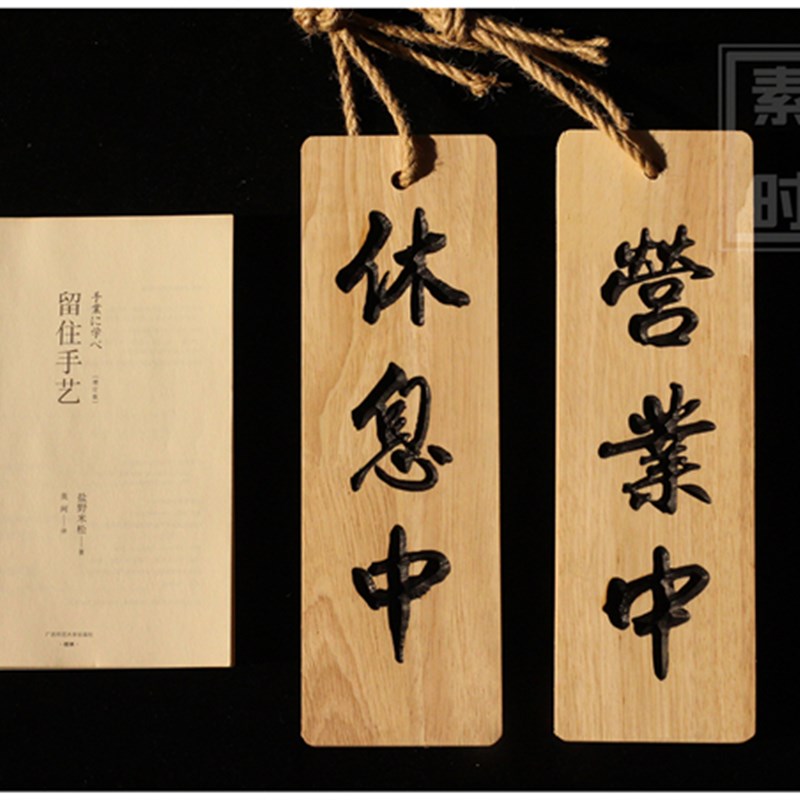 手業に学べ
留住手艺
(增订版)
盐野米松 — 著
英珂 — 译
广西师范大学出版社
休息中
營業中
素
时